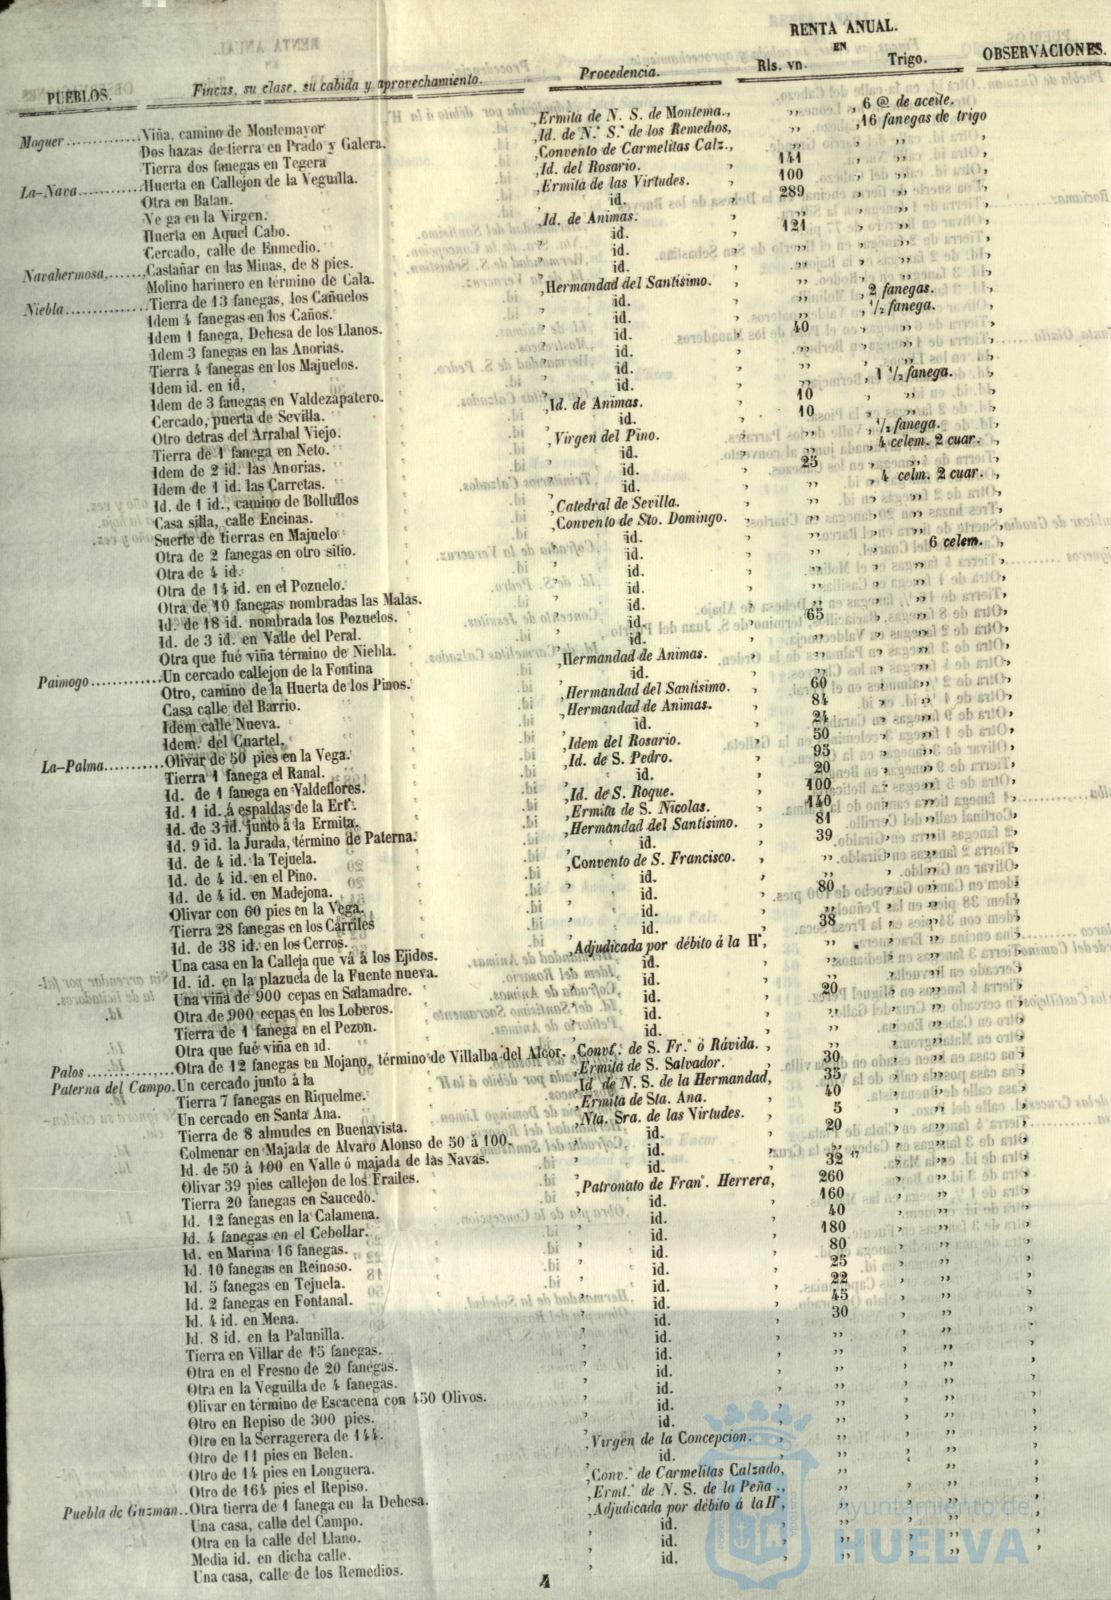 RENTA ANUAL.
EN
PUEBLOS. Fincas, su clase, su cabida y aprovechamiento. Procedencia. Rls. vn. Trigo. OBSERVACIONES.
Moguer Viña, camino de Montemayor ,Ermita de N. S. de Montema., ,, , 6 @ de aceite.
Dos hazas de tierra en Prado y Galera. ,Id. de N.ª S.ª de los Remedios, ,, ,16 fanegas de trigo
Tierra dos fanegas en Tegera ,Convento de Carmelitas Calz., 141
La-Nava Huerta en Callejon de la Veguilla. ,Id. del Rosario. 100
Otra en Batan. ,Ermita de las Virtudes. 289
Vega en la Virgen. id. ,,
Huerta en Aquel Cabo. ,Id. de Animas. 121
Cercado, calle de Enmedio. id.
Navahermosa, Castañar en las Minas, de 8 pies. id.
Molino harinero en término de Cala. id.
Niebla Tierra de 13 fanegas, los Cañuelos ,Hermandad del Santisimo. , 2 fanegas.
Idem 4 fanegas en los Caños. id. , 1/2 fanega.
Idem 1 fanega, Dehesa de los Llanos. id. 40
Idem 3 fanegas en las Anorias. id.
Tierra 4 fanegas en los Majuelos. id.
Idem id. en id, id. , 1 1/2 fanega.
Idem de 3 fanegas en Valdezapatero. id. 10
Cercado, puerta de Sevilla. ,Id. de Animas. 10
Otro detras del Arrabal Viejo. id. , 1/2 fanega.
Tierra de 1 fanega en Neto. ,Virgen del Pino. , 4 celem. 2 cuar.
Idem de 2 id. las Anorias. id. 25
Idem de 1 id. las Carretas. id. , 4 celm. 2 cuar.
Id. de 1 id., camino de Bollullos id.
Casa silla, calle Encinas. ,Catedral de Sevilla.
Suerte de tierras en Majuelo ,Convento de Sto. Domingo.
Otra de 2 fanegas en otro sitio. id. 6 celem.
Otra de 4 id. id.
Otra de 14 id. en el Pozuelo. id.
Otra de 10 fanegas nombradas las Malas. id.
Id. de 18 id. nombrada los Pozuelos. id. 65
Id. de 3 id. en Valle del Peral. id.
Otra que fué viña término de Niebla. id.
Paimogo Un cercado callejon de la Fontina ,Hermandad de Animas.
Otro, camino de la Huerta de los Pinos. id. 60
Casa calle del Barrio. ,Hermandad del Santisimo. 84
Idem calle Nueva. ,Hermandad de Animas. 24
Idem. del Cuartel. id. 50
La-Palma Olivar de 50 pies en la Vega. ,Idem del Rosario. 95
Tierra 1 fanega el Ranal. ,Id. de S. Pedro. 20
Id. de 1 fanega en Valdeflores. id. 100
Id. 1 id. á espaldas de la Erª. ,Id. de S. Roque. 140
Id. de 3 id. junto á la Ermita. ,Ermita de S. Nicolas. 81
Id. 9 id. la Jurada, término de Paterna. ,Hermandad del Santisimo. 39
Id. de 4 id. la Tejuela. id.
Id. de 4 id. en el Pino. ,Convento de S. Francisco.
Id. de 4 id. en Madejona. id. 80
Olivar con 60 pies en la Vega. id.
Tierra 28 fanegas en los Carriles id. 38
Id. de 38 id. en los Cerros. id.
Una casa en la Calleja que vá á los Ejidos. ,Adjudicada por débito á la Hª,
Id. id. en la plazuela de la Fuente nueva. id.
Una viña de 900 cepas en Salamadre. id. 20
Otra de 900 cepas en los Loberos. id.
Tierra de 1 fanega en el Pezon. id.
Otra que fué viña en id. id.
Palos Otra de 12 fanegas en Mojano, término de Villalba del Alcor. ,Convt.º de S. Fr.º ó Rávida. , 30
Paterna del Campo. Un cercado junto á la ,Ermita de S. Salvador. 35
Tierra 7 fanegas en Riquelme. ,Id de N. S. de la Hermandad, 40
Un cercado en Santa Ana. ,Ermita de Sta. Ana. 5
Tierra de 8 almudes en Buenavista. ,Nta. Sra. de las Virtudes. 20
Colmenar en Majada de Alvaro Alonso de 50 á 100. id.
Id. de 50 á 100 en Valle ó majada de las Navas. id. 32 17
Olivar 39 pies callejon de los Frailes. id. 260
Tierra 20 fanegas en Saucedo. ,Patronato de Franº. Herrera, 160
Id. 12 fanegas en la Calamena. id. 40
Id. 4 fanegas en el Cebollar. id. 180
Id. en Marina 16 fanegas. id. 80
Id. 10 fanegas en Reinoso. id. 25
Id. 5 fanegas en Tejuela. id. 22
Id. 2 fanegas en Fontanal. id. 45
Id. 4 id. en Mena. id. 30
Id. 8 id. en la Palunilla. id.
Tierra en Villar de 15 fanegas. id.
Otra en el Fresno de 20 fanegas. id.
Otra en la Veguilla de 4 fanegas. id.
Olivar en término de Escacena con 450 Olivos. id.
Otro en Repiso de 300 pies. id.
Otro en la Serragerera de 144. id.
Otro de 11 pies en Belen. ,Virgen de la Concepcion.
Otro de 14 pies en Longuera. id.
Otro de 164 pies el Repiso. ,Conv.º de Carmelitas Calzado,
Puebla de Guzman Otra tierra de 1 fanega en la Dehesa. ,Ermt.ª de N. S. de la Peña .,
Una casa, calle del Campo. ,Adjudicada por débito á la Hª,
Otra en la calle del Llano. id.
Media id. en dicha calle. id.
Una casa, calle de los Remedios. id.
4
Ayuntamiento de
HUELVA